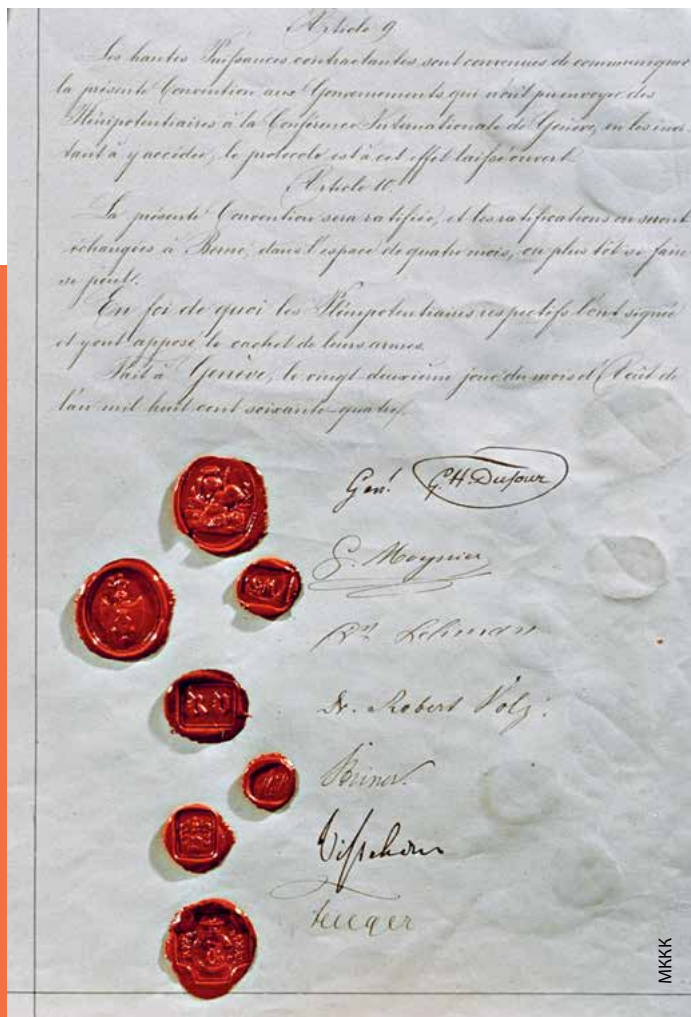 Article 9
Les hautes Puissances contractantes sont convenues de communiquer
la présente Convention aux Gouvernements qui n'ont pu envoyer des
Plénipotentiaires à la Conférence Internationale de Genève, en les invi-
tant à y accéder, le protocole est à cet effet laissé ouvert.
Article 10.
La présente Convention sera ratifiée, et les ratifications en seront
échangées à Berne, dans l'espace de quatre mois, ou plus tôt si faire
se peut.
En foi de quoi les Plénipotentiaires respectifs l'ont signée
et y ont apposé le cachet de leurs armes.
Fait à Genève, le vingt-deuxième jour du mois d'Août de
l'an mil huit cent soixante-quatre.
Genl G.H. Dufour
G. Moynier
Lehmann
Dr. Robert Volz.
Steiner.
Visschers
МККК